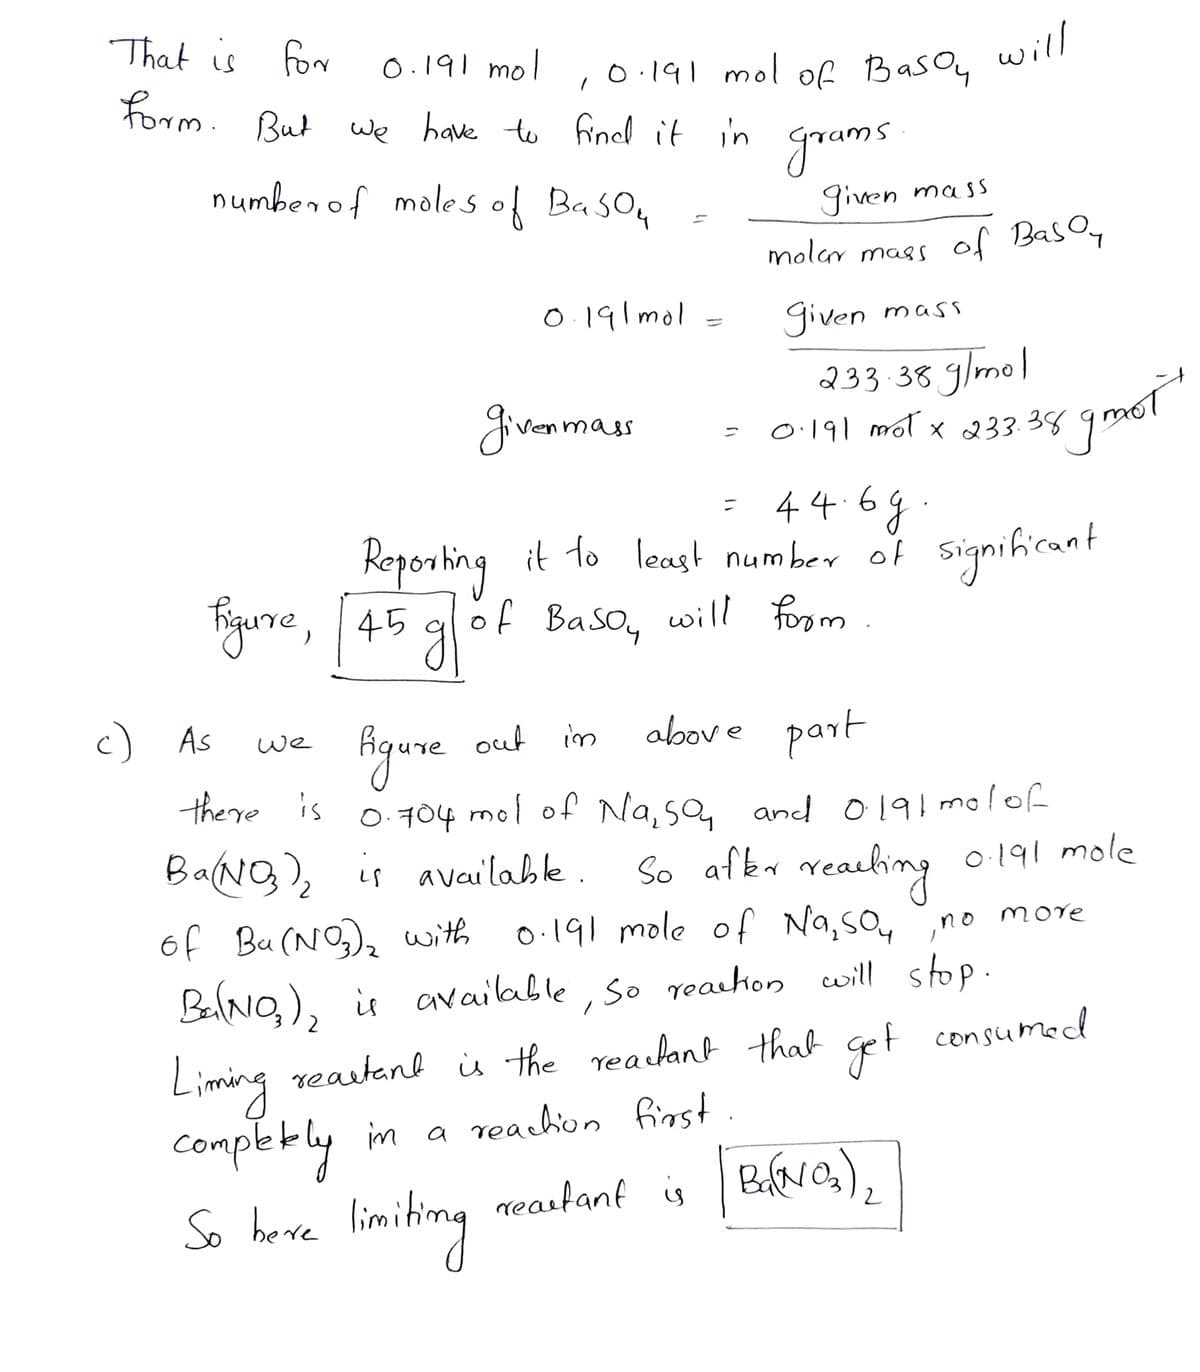 That is for 0.191 mol , 0.191 mol of BaSO4 will
form. But we have to find it in grams.
number of moles of BaSO4 = given mass / molar mass of BaSO4
0.191mol = given mass / 233.38 g/mol
given mass = 0.191 mol x 233.38 g mol-1
= 44.6g.
Reporting it to least number of significant
figure, 45 g of BaSO4 will form.
c) As we figure out in above part
there is 0.704 mol of Na2SO4 and 0.191 mol of
Ba(NO3)2 is available. So after reacting 0.191 mole
of Ba(NO3)2 with 0.191 mole of Na2SO4, no more
Ba(NO3)2 is available, so reaction will stop.
Liming reactant is the reactant that get consumed
completely in a reaction first.
So here limiting reactant is Ba(NO3)2